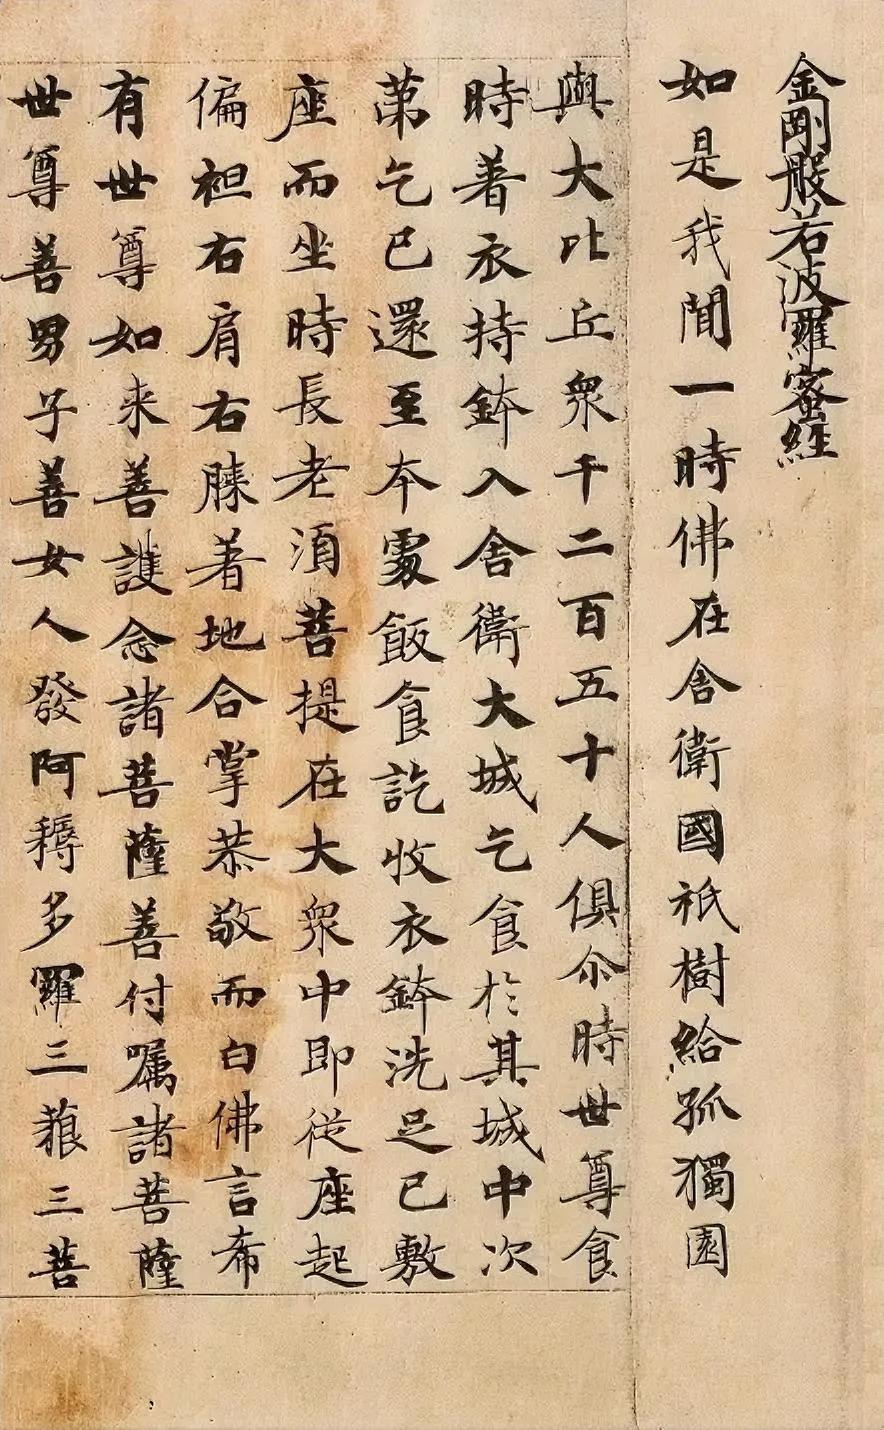 金剛般若波羅蜜經
如是我聞一時佛在舍衛國祇樹給孤獨園
與大比丘衆千二百五十人俱尒時世尊食
時著衣持鉢入舍衛大城乞食於其城中次
第乞已還至本處飯食訖收衣鉢洗足已敷
座而坐時長老須菩提在大衆中即從座起
偏袒右肩右膝著地合掌恭敬而白佛言希
有世尊如来善護念諸菩薩善付嘱諸菩薩
世尊善男子善女人發阿耨多羅三藐三菩